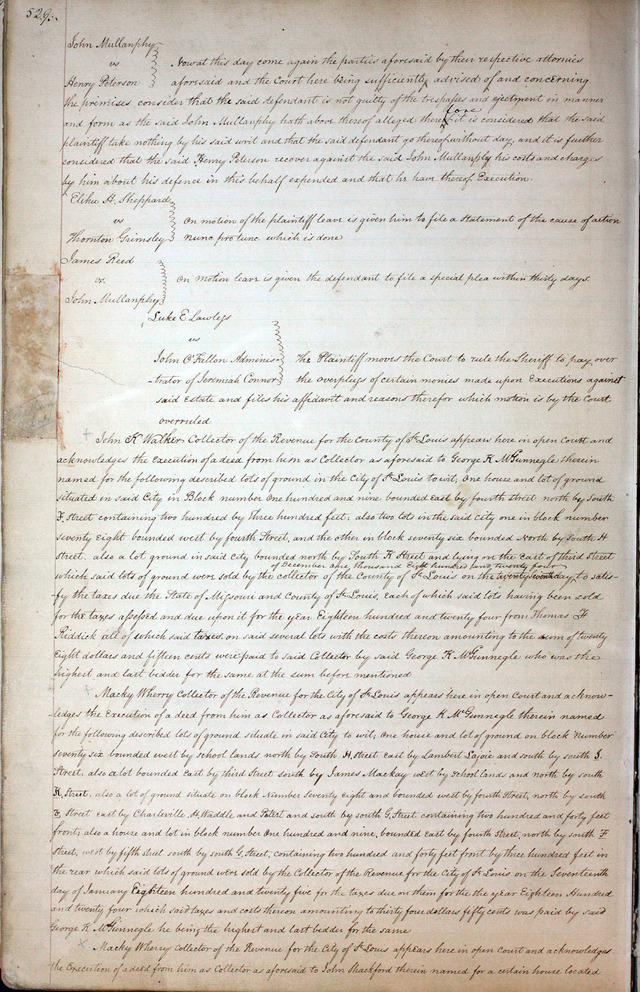 529.
John Mullanphy
vs
Henry Peterson
Now at this day come again the parties aforesaid by their respective attornies
aforesaid and the Court here being sufficiently advised of and concerning
the premises consider that the said defendant is not guilty of the trespass and ejectment in manner
and form as the said John Mullanphy hath above thereof alleged therefore it is considered that the said
plaintiff take nothing by his said writ and that the said defendant go thereof without day, and it is further
considered that the said Henry Peterson recover against the said John Mullanphy his costs and charges
by him about his defence in this behalf expended and that he have thereof Execution.
Elihu H. Sheppard
vs
Thornton Grimsley
On motion of the plaintiff leave is given him to file a statement of the cause of action
nunc pro tunc which is done
James Reed
vs.
John Mullanphy
On motion leave is given the defendant to file a special plea within thirty days.
Luke E Lawless
vs
John O'Fallon Adminis-
trator of Jeremiah Connor
The Plaintiff moves the Court to rule the Sheriff to pay over
the overplus of certain monies made upon Executions against
said Estate and files his affidavit and reasons therefor which motion is by the Court
overruled
John K Walker Collector of the Revenue for the County of St Louis appears here in open Court and
acknowledges the execution of a deed from him as Collector as aforesaid to George K McGunnegle therein
named for the following described lots of ground in the City of St Louis to wit, One house and lot of ground
situated in said City in Block number One hundred and nine bounded East by fourth street north by South
F, Street containing two hundred by three hundred feet, also two lots in the said city one in block number
seventy Eight bounded west by fourth Street, and the other in block seventy six bounded North by South H
Street, also a lot ground in said City bounded north by South K Street and lying on the East of third Street
of December One thousand Eight hundred and twenty four
which said lots of ground were sold by the collector of the County of St Louis on the day to satis-
fy the taxes due the State of Missouri and County of St Louis, each of which said lots having been sold
for the taxes assessed and due upon it for the year Eighteen hundred and twenty four from Thomas F
Riddick all of which said taxes on said several lots with the costs thereon amounting to the sum of twenty
Eight dollars and fifteen cents were paid to said Collector by said George K McGunnegle who was the
highest and last bidder for the same at the sum before mentioned
Macky Wherry Collector of the Revenue for the City of St Louis appears here in open Court and acknow-
ledges the Execution of a deed from him as Collector as aforesaid to George K McGunnegle therein named
for the following described lots of ground situate in said City to wit, One house and lot of ground on block number
seventy six bounded west by school lands north by South H, street East by Lambert Lajoie and south by south J.
Street, also a lot bounded East by third Street south by James Mackay west by school lands and north by south
K, Street, also a lot of ground situate on block Number Seventy Eight and bounded west by fourth Street, north by south
F Street east by Charleville H, Waddle and and south by south G, Street containing two hundred and forty feet
front, also a house and lot in block number One hundred and nine, bounded east by fourth street, north by south F
Street, west by fifth street south by south G, Street, containing two hundred and forty feet front by three hundred feet in
the rear which said lots of ground were sold by the Collector of the Revenue for the City of St Louis on the Seventeenth
day of January Eighteen hundred and twenty five for the taxes due on them for the the year Eighteen Hundred
and twenty four which said taxes and costs thereon amounting to thirty four dollars fifty cents was paid by said
George K McGunnegle he being the highest and last bidder for the same
Macky Wherry Collector of the Revenue for the City of St Louis appears here in open Court and acknowledges
the Execution of a deed from him as Collector as aforesaid to John Shackford therein named for a certain house located